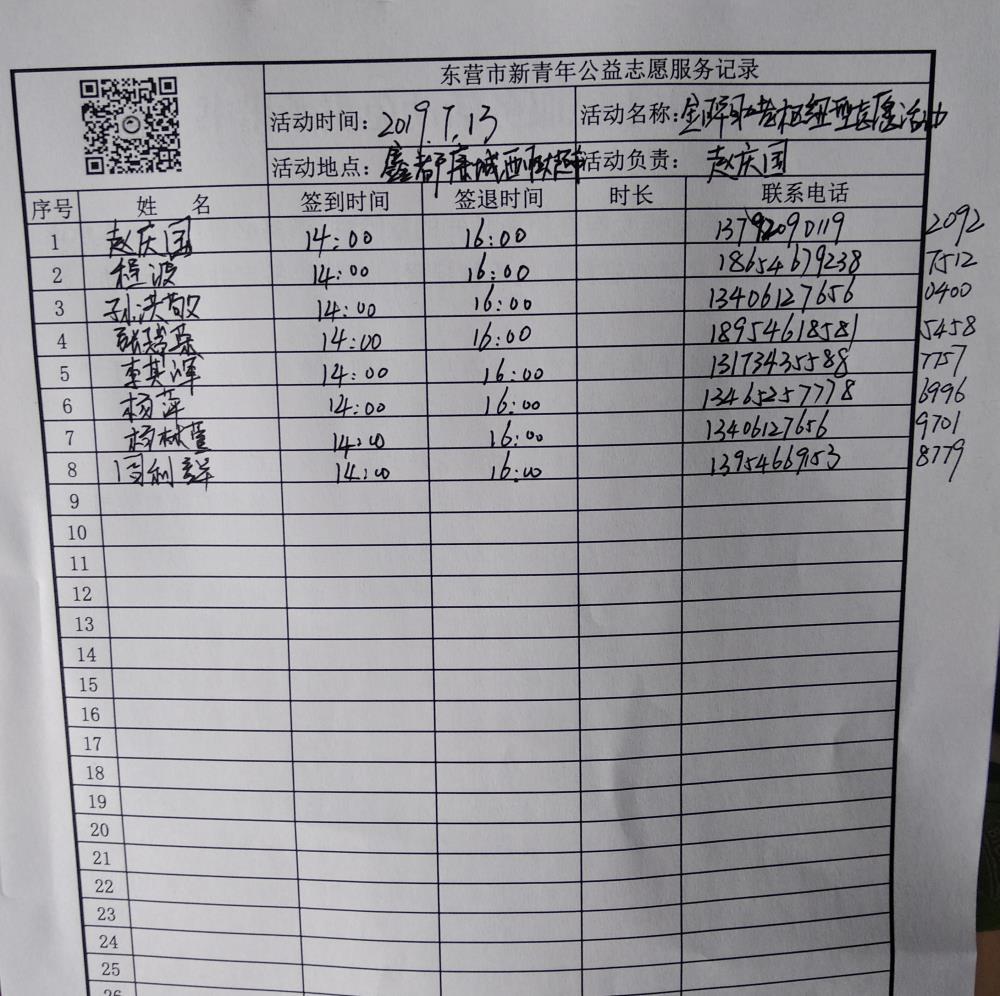 东营市新青年公益志愿服务记录
活动时间：2019.7.13 活动名称：金晖 志愿活动
活动地点：鑫都 活动负责：赵庆国
序号 姓 名 签到时间 签退时间 时长 联系电话
1 赵庆国 14:00 16:00 13792090119 2092
2 程波 14:00 16:00 18654679238 7512
3 孙洪敬 14:00 16:00 13406127656 0400
4 14:00 16:00 18954618581 5458
5 李其浑 14:00 16:00 13173435588 7757
6 杨萍 14:00 16:00 13465257778 6996
7 杨林萱 14:00 16:00 13406127656 9701
8 闫利群 14:00 16:00 13954669153 8779
9
10
11
12
13
14
15
16
17
18
19
20
21
22
23
24
25
26